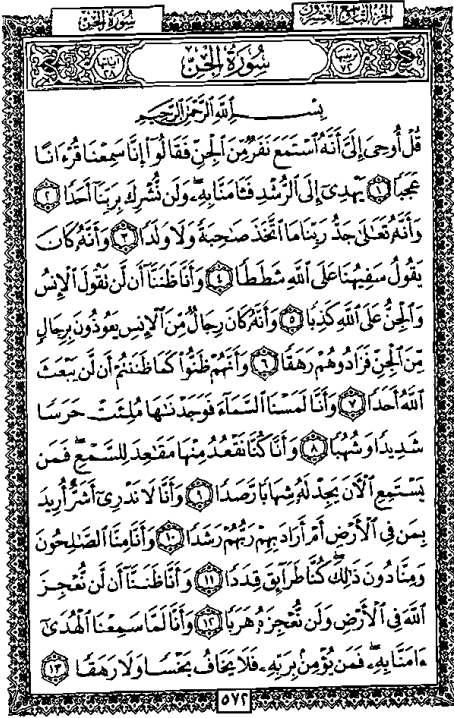 سُورَةُ الجِنّ
الجُزءُ التَّاسِعُ وَالعِشْرُونَ
سُورَةُ الجِنِّ
بِسْمِ اللَّهِ الرَّحْمَٰنِ الرَّحِيمِ
قُلْ أُوحِىَ إِلَىَّ أَنَّهُ ٱسْتَمَعَ نَفَرٌ مِّنَ ٱلْجِنِّ فَقَالُوٓا۟ إِنَّا سَمِعْنَا قُرْءَانًا
عَجَبًا ١ يَهْدِىٓ إِلَى ٱلرُّشْدِ فَـَٔامَنَّا بِهِۦ وَلَن نُّشْرِكَ بِرَبِّنَآ أَحَدًا ٢
وَأَنَّهُۥ تَعَٰلَىٰ جَدُّ رَبِّنَا مَا ٱتَّخَذَ صَٰحِبَةً وَلَا وَلَدًا ٣ وَأَنَّهُۥ كَانَ
يَقُولُ سَفِيهُنَا عَلَى ٱللَّهِ شَطَطًا ٤ وَأَنَّا ظَنَنَّآ أَن لَّن تَقُولَ ٱلْإِنسُ
وَٱلْجِنُّ عَلَى ٱللَّهِ كَذِبًا ٥ وَأَنَّهُۥ كَانَ رِجَالٌ مِّنَ ٱلْإِنسِ يَعُوذُونَ بِرِجَالٍ
مِّنَ ٱلْجِنِّ فَزَادُوهُمْ رَهَقًا ٦ وَأَنَّهُمْ ظَنُّوا۟ كَمَا ظَنَنتُمْ أَن لَّن يَبْعَثَ
ٱللَّهُ أَحَدًا ٧ وَأَنَّا لَمَسْنَا ٱلسَّمَآءَ فَوَجَدْنَٰهَا مُلِئَتْ حَرَسًا
شَدِيدًا وَشُهُبًا ٨ وَأَنَّا كُنَّا نَقْعُدُ مِنْهَا مَقَٰعِدَ لِلسَّمْعِ فَمَن
يَسْتَمِعِ ٱلْـَٔانَ يَجِدْ لَهُۥ شِهَابًا رَّصَدًا ٩ وَأَنَّا لَا نَدْرِىٓ أَشَرٌّ أُرِيدَ
بِمَن فِى ٱلْأَرْضِ أَمْ أَرَادَ بِهِمْ رَبُّهُمْ رَشَدًا ١٠ وَأَنَّا مِنَّا ٱلصَّٰلِحُونَ
وَمِنَّا دُونَ ذَٰلِكَ كُنَّا طَرَآئِقَ قِدَدًا ١١ وَأَنَّا ظَنَنَّآ أَن لَّن نُّعْجِزَ
ٱللَّهَ فِى ٱلْأَرْضِ وَلَن نُّعْجِزَهُۥ هَرَبًا ١٢ وَأَنَّا لَمَّا سَمِعْنَا ٱلْهُدَىٰٓ
ءَامَنَّا بِهِۦ فَمَن يُؤْمِنۢ بِرَبِّهِۦ فَلَا يَخَافُ بَخْسًا وَلَا رَهَقًا ١٣
٥٧٢